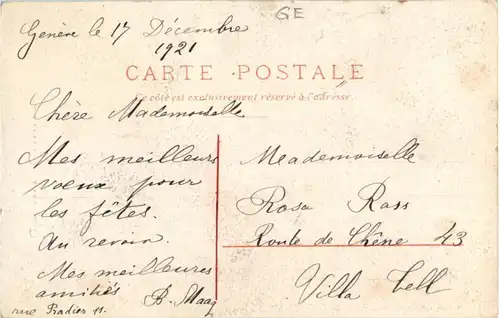 GE
Genève le 17 Décembre
1921
CARTE POSTALE
Ce côté est exclusivement réservé à l'adresse.
Chère Mademoiselle
Mes meilleurs
voeux pour
les fêtes.
Au revoir.
Mes meilleures
amitiés B. Maag
rue Pradier 11.
Meademoiselle
Rosa Rass
Route de Chêne 43
Villa Tell